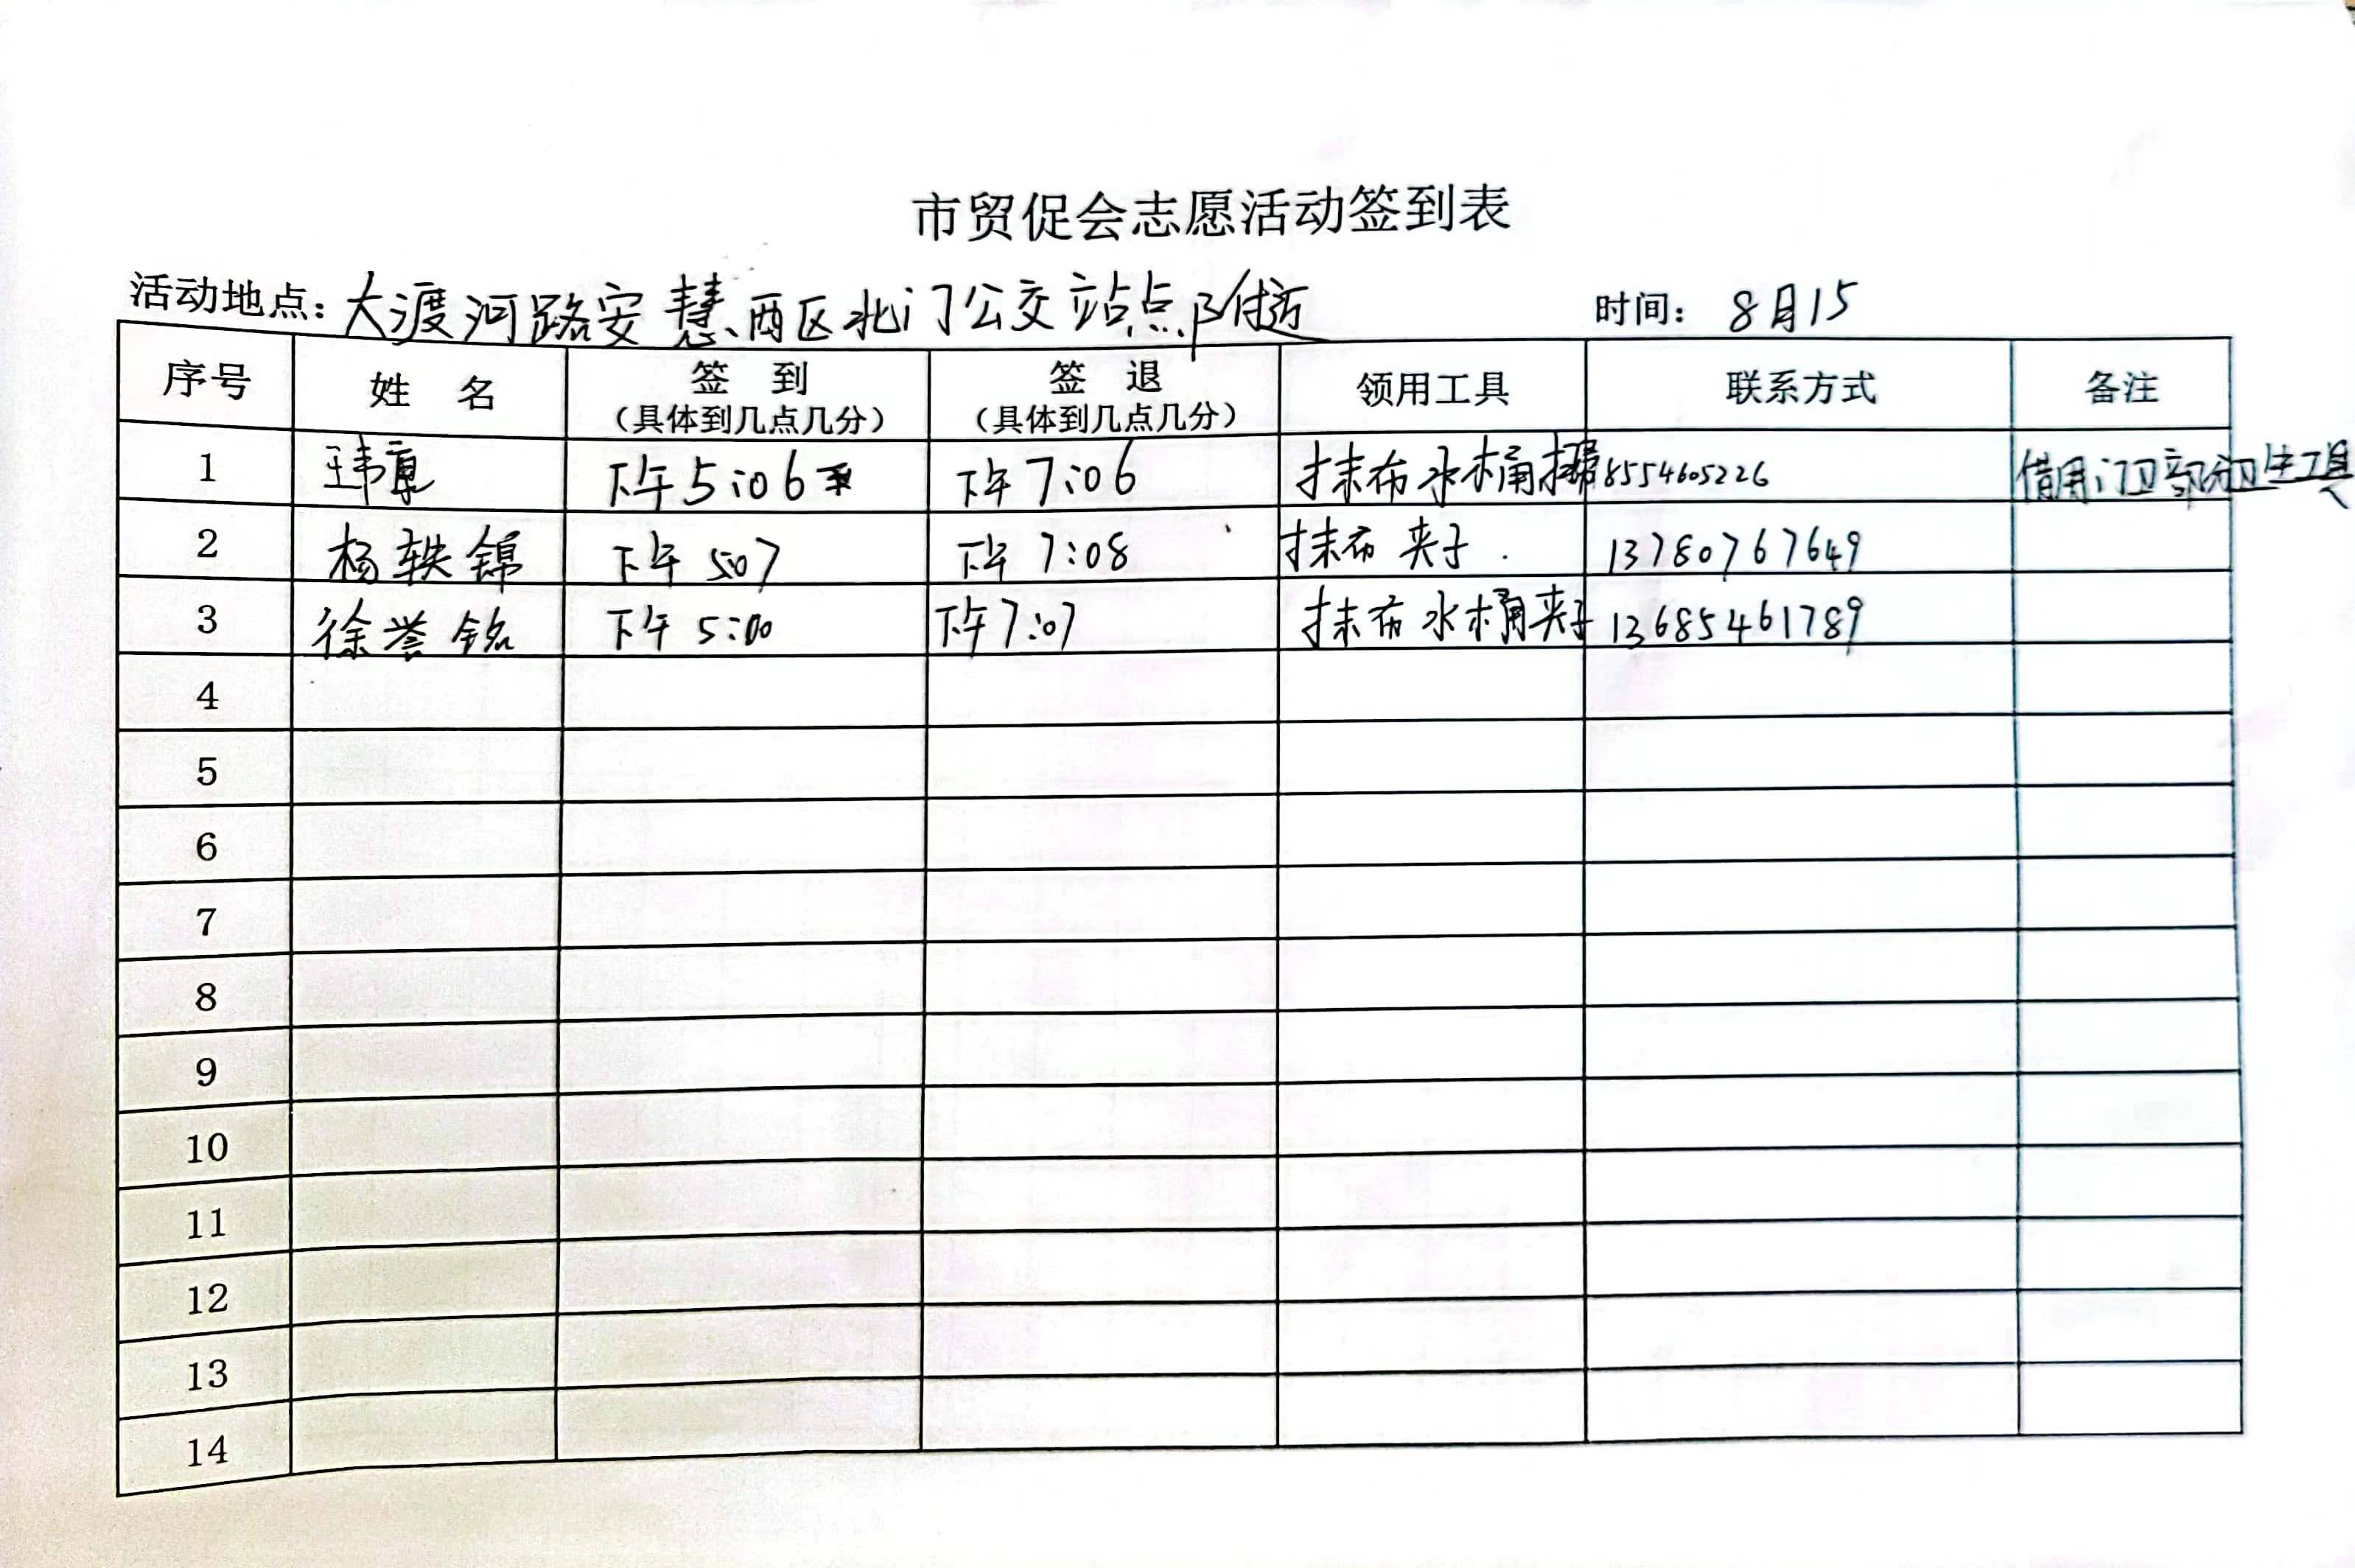 市贸促会志愿活动签到表
活动地点：大渡河路安慧西区北门公交站点附近 时间： 8月15
序号 姓 名 签 到 （具体到几点几分） 签 退 （具体到几点几分） 领用工具 联系方式 备注
1 王玮康 下午5:06 下午7:06 抹布 水桶 8554605226 借用门卫部分卫生工具
2 杨轶锦 下午 5:07 下午 7:08 抹布 夹子 13780767649
3 徐誉铭 下午 5:00 下午7:07 抹布 水桶 夹子 13685461789
4
5
6
7
8
9
10
11
12
13
14